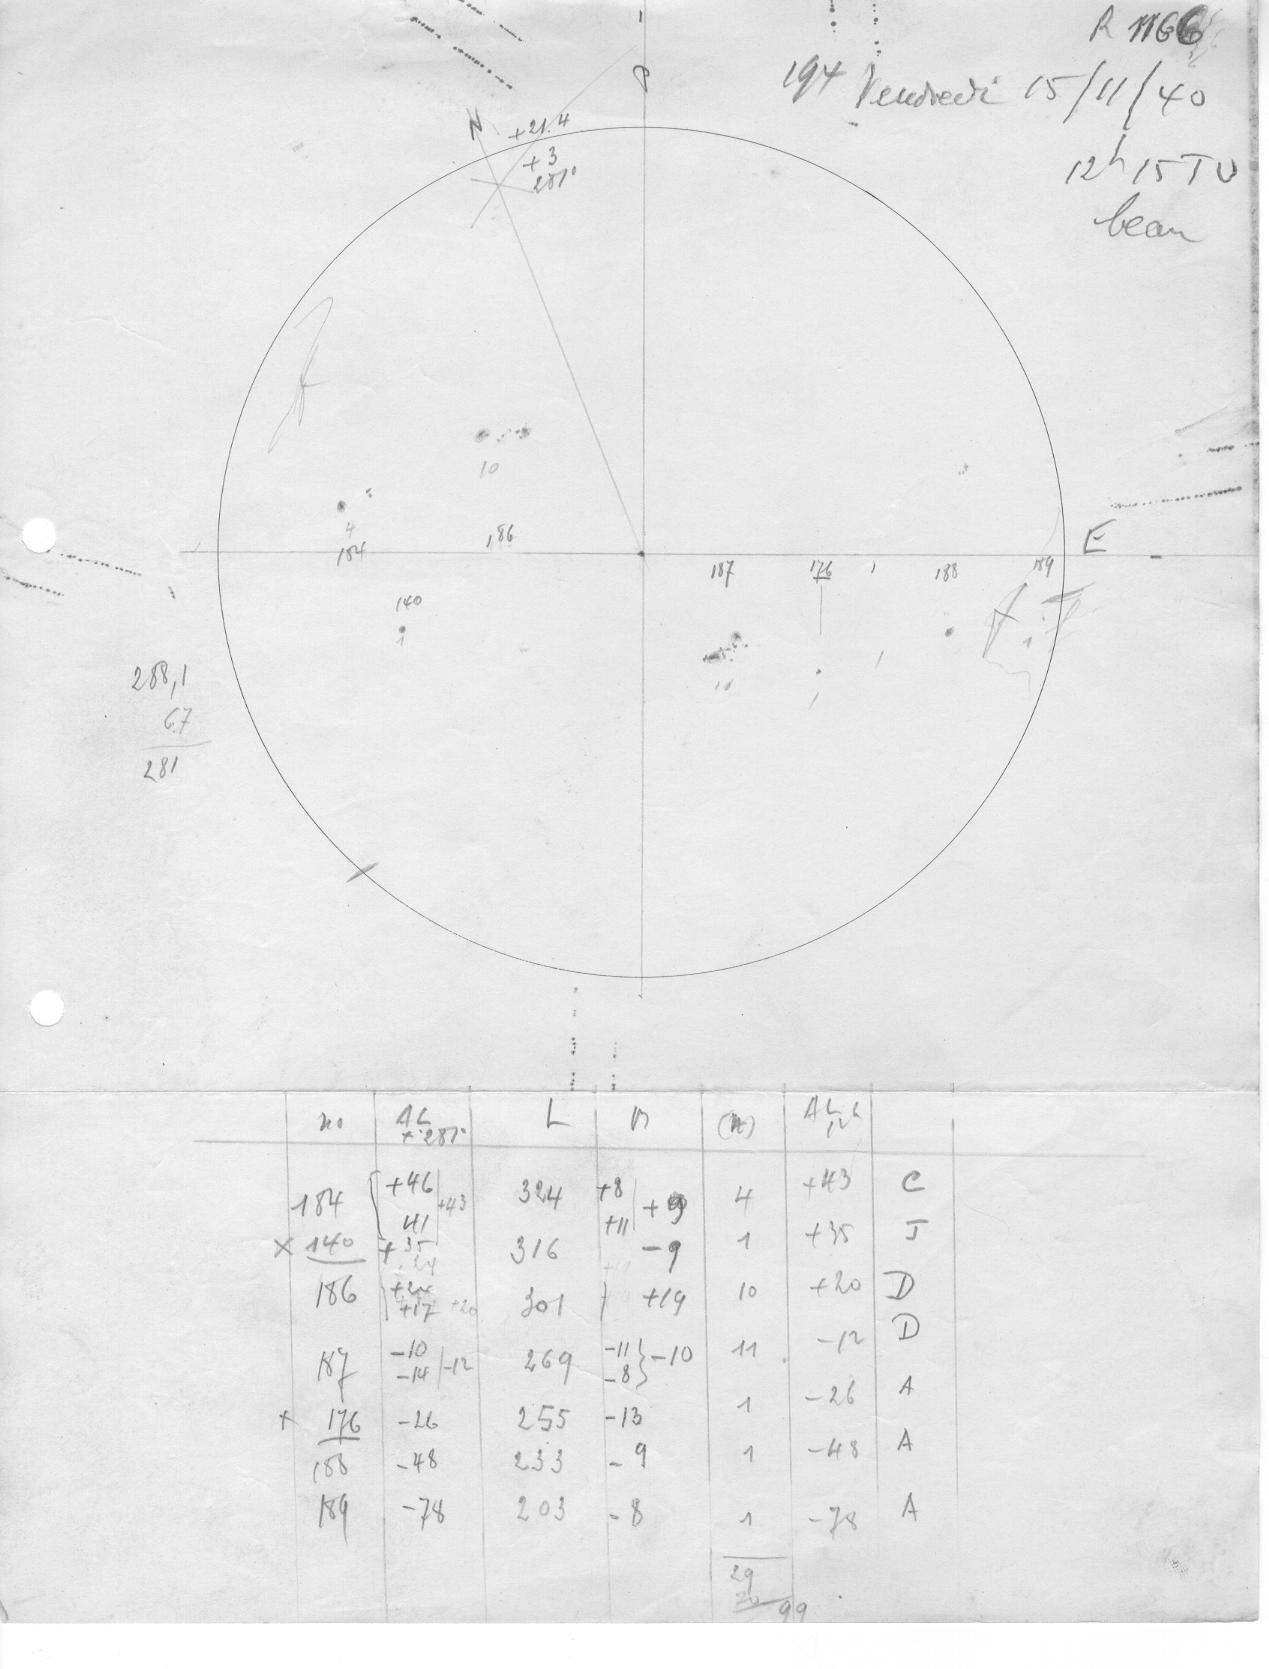 R 1166
194 Vendredi 15/11/40
12h 15 TU
beau
N
+21.4
+3
281°
10
4
184
186
E
187
176
1
188
189
140
1
1
10
1
288,1
6.7
281
no AL L B (N) AL
+ 281° 12h
184 +46 +43 324 +8 +9 4 +43 C
41 +11
x 140 +35 316 -9 1 +35 J
186 +24 301 +19 10 +20 D
+17 +20
187 -10 -12 269 -11 -10 11 -12 D
-14 -8
x 176 -26 255 -13 1 -26 A
188 -48 233 -9 1 -48 A
189 -78 203 -8 1 -78 A
29
99